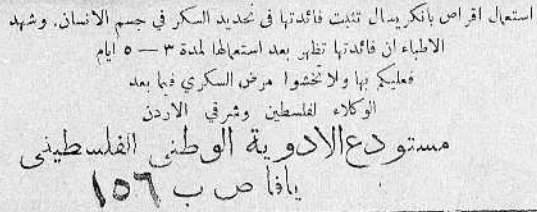 استعمال اقراص بانكريسال تثبت فائدتها في تحديد السكر في جسم الانسان. وشهد
الاطباء ان فائدتها تظهر بعد استعمالها لمدة ٣ — ٥ ايام
فعليكم بها ولا تخشوا مرض السكري فيما بعد
الوكلاء لفلسطين وشرقي الاردن
مستودع الادوية الوطني الفلسطيني
يافا ص ب ١٥٦